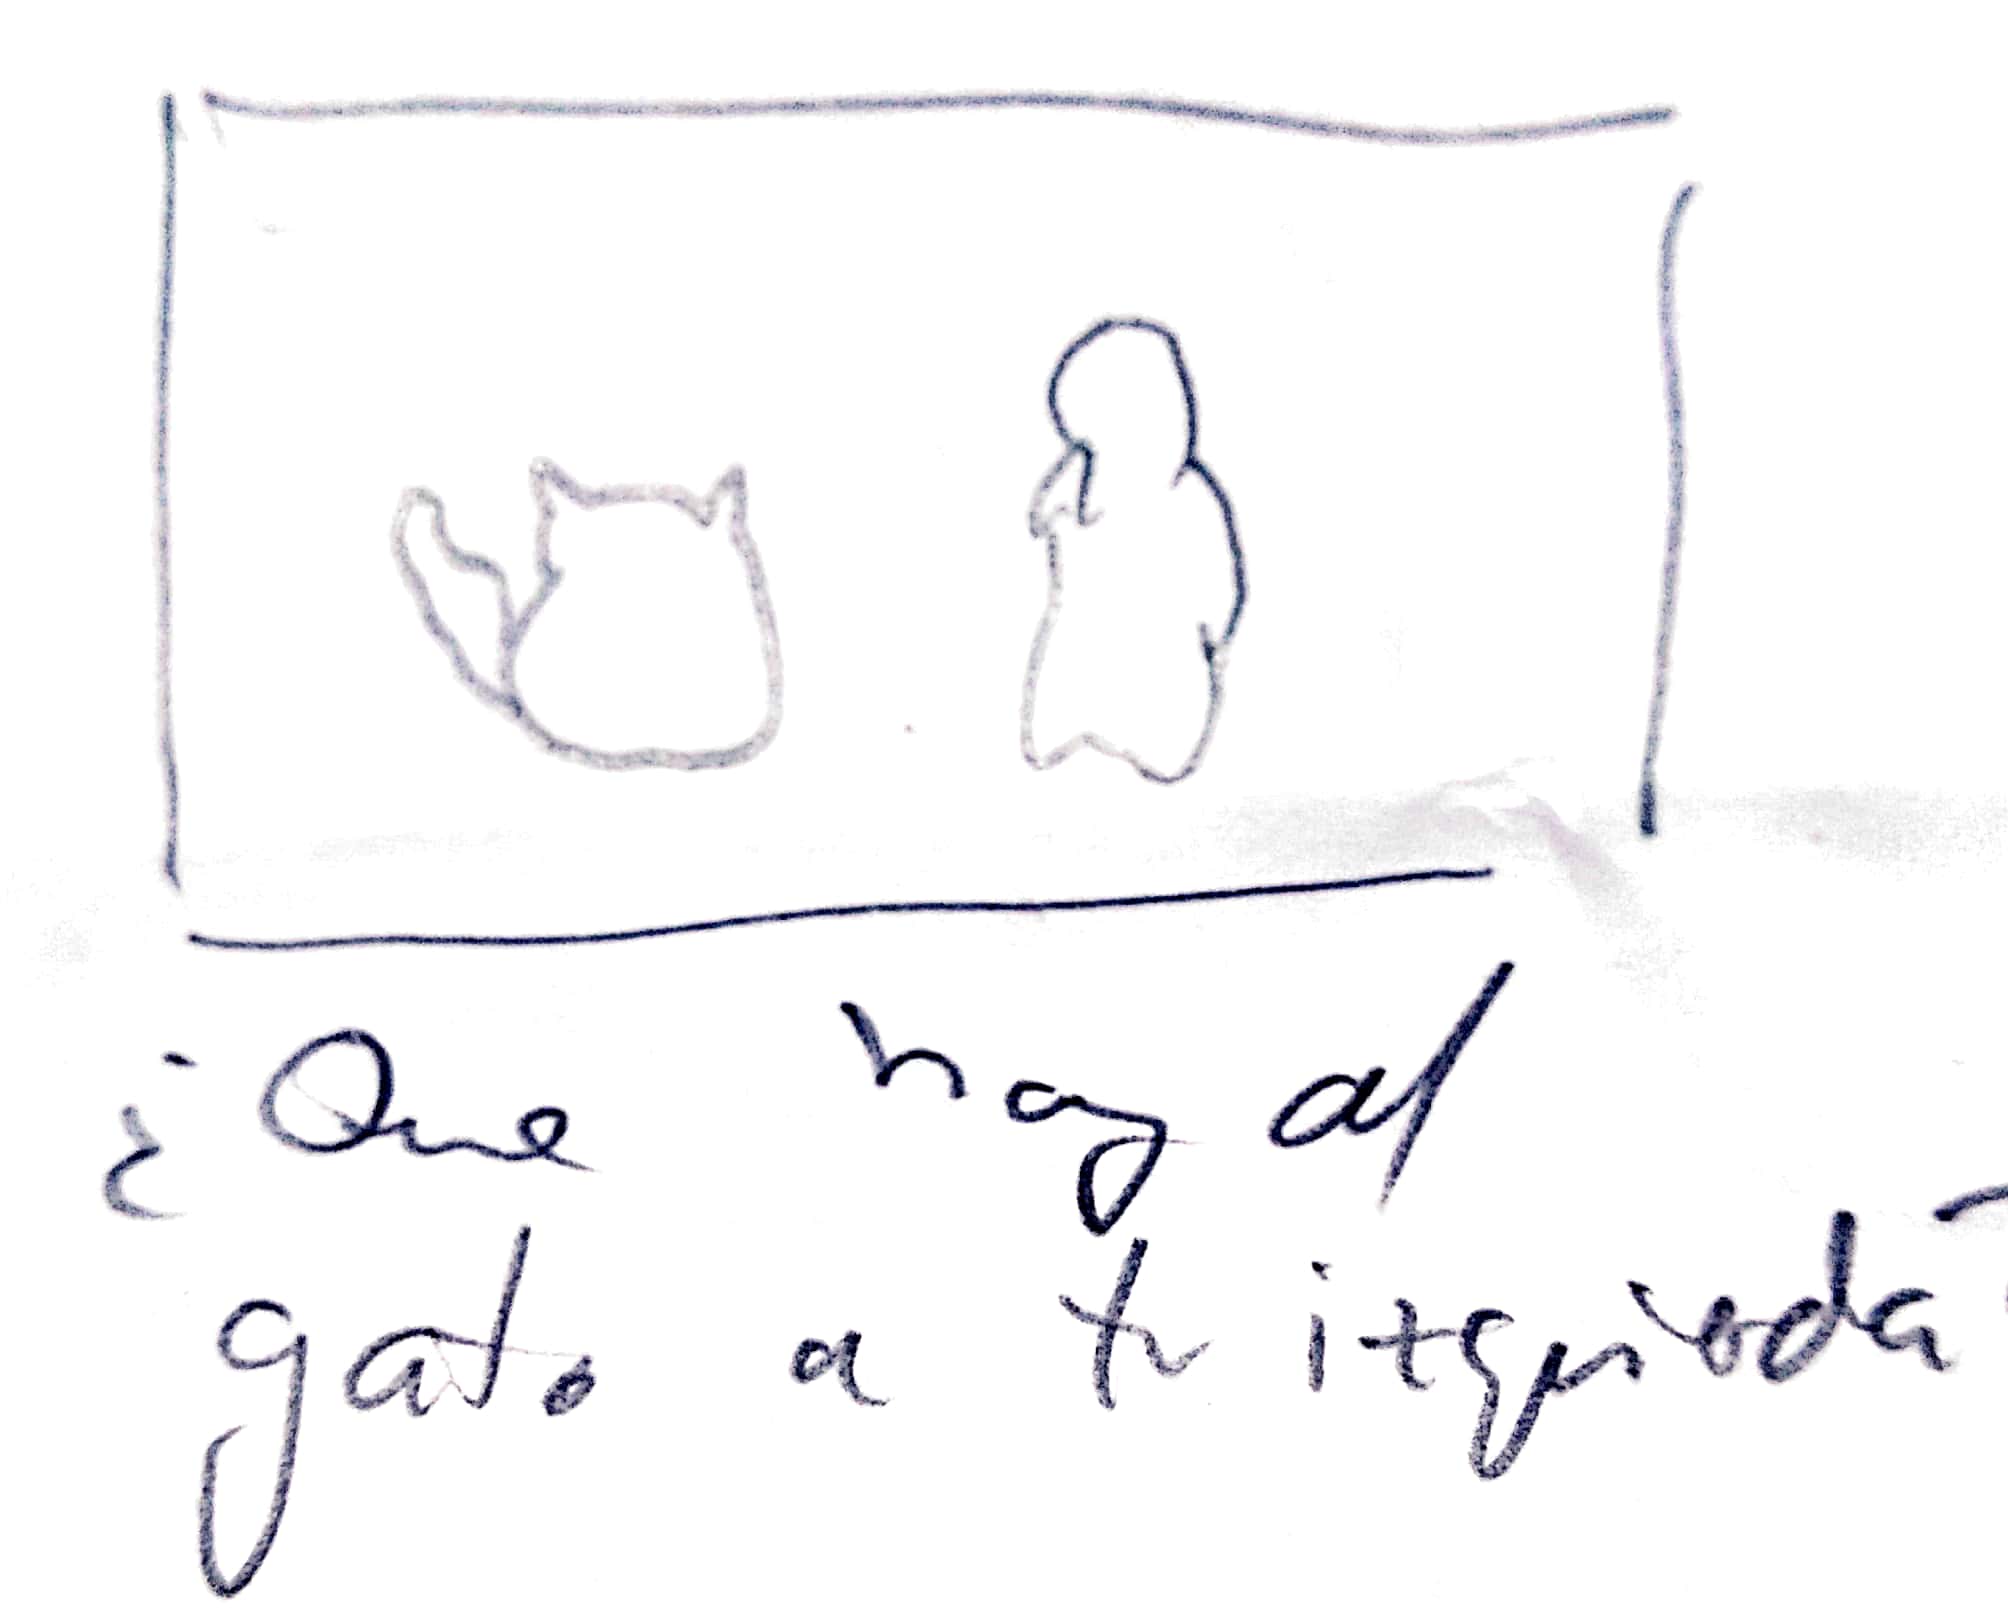 ¿Que hay al
gato a tu izquioda?